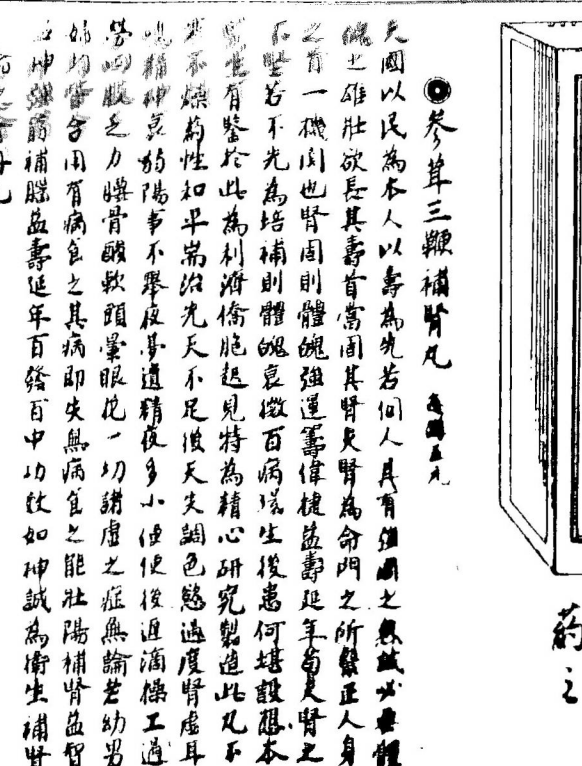 參茸三鞭補腎丸 每購五元
夫國以民為本人以壽為先若個人具有強國之無體
魄之雄壯欲長其壽首當固其腎夫腎為命門之所繫正人身
之首一機関也腎固則體魄強運籌偉樻益壽延年苟夫腎之
不堅若不先為培補則體魄衰微百病滋生後患何堪設想本
醫生有鑒於此為利濟僑胞起見特為精心研究製造此丸不
寒不燥葯性和平耑治先天不足後天失調色慾過度腎虛耳
鳴精神衰弱陽事不舉夜夢遺精夜多小便便後遺滴操工過
勞四肢乏力腰骨酸軟頭暈眼花一切諸虛之症無論老幼男
婦均宜合用有病食之其病即失無病食之能壯陽補腎益智
神強筋補腦益壽延年百發百中功效如神誠為衛生補腎
葯之